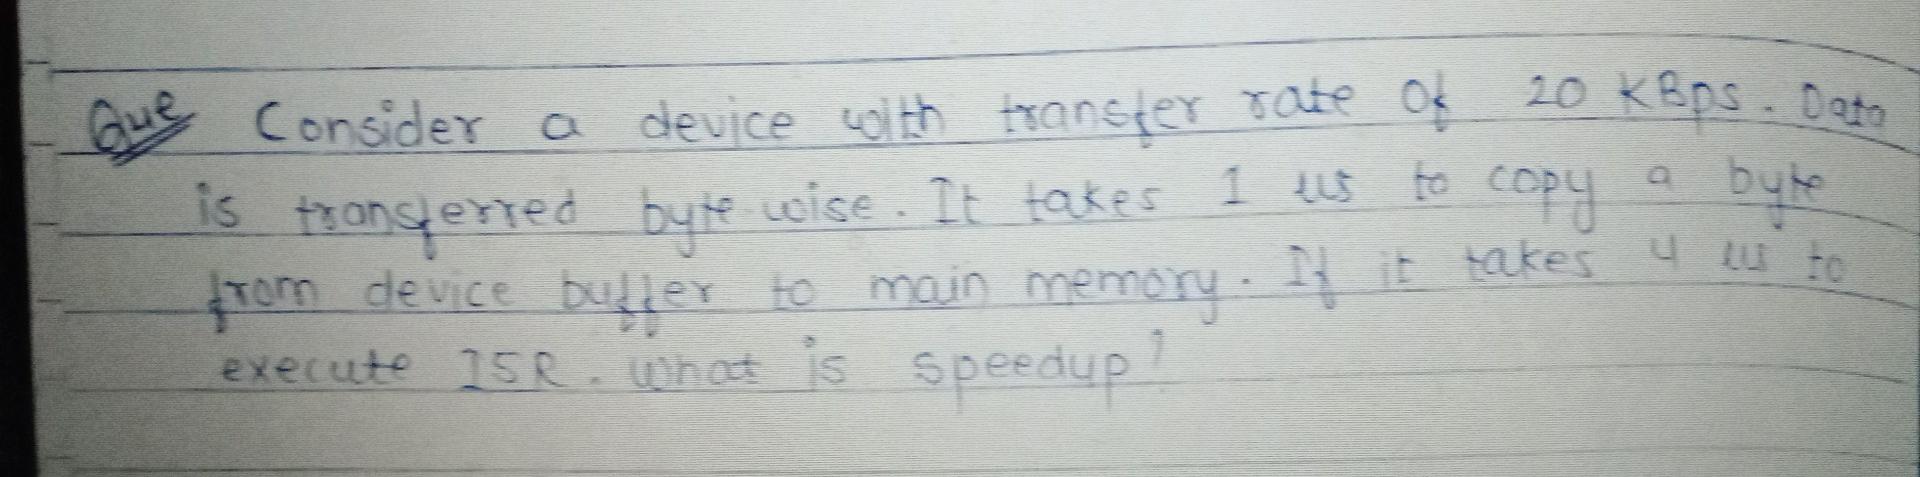 Que Consider a device with transfer rate of 20 KBps. Data
is transferred byte wise. It takes 1 us to copy a byte
from device buffer to main memory. If it takes 4 us to
execute ISR. What is speedup?